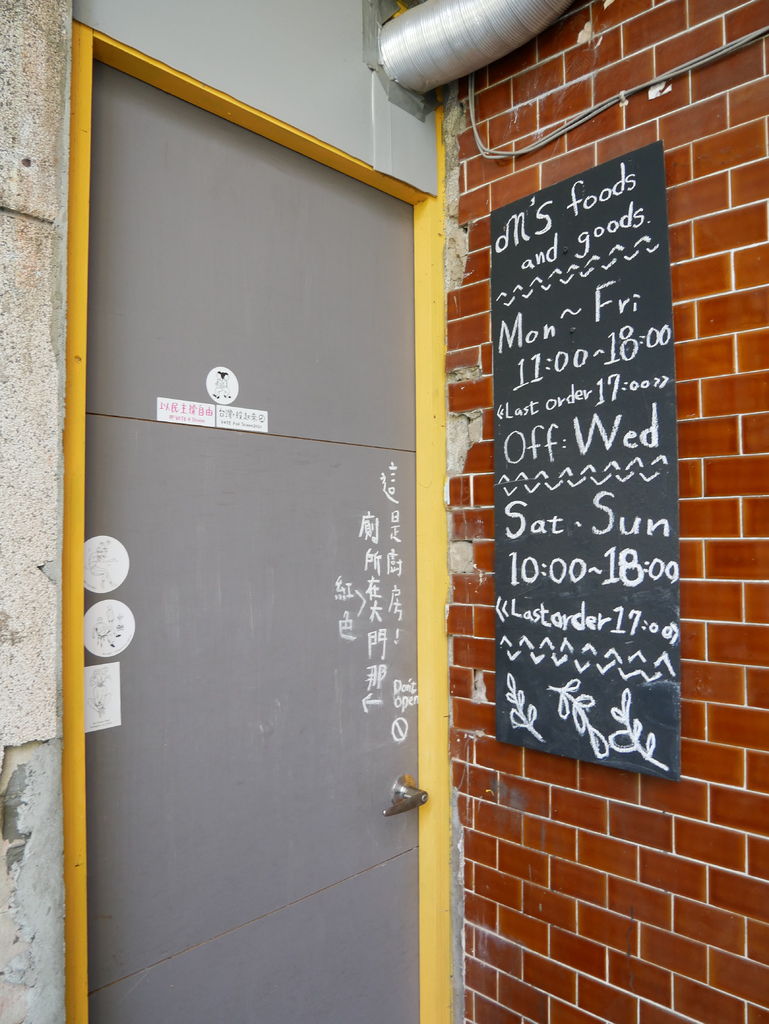 M's foods
and goods.
Mon ~ Fri
11:00~18:00
«Last order 17:00»
Off: Wed
Sat · Sun
10:00~18:00
«Last order 17:00»
以民主撐自由
台灣·投起來
這是廚房!
廁所在大門那←
紅色
Don't
open